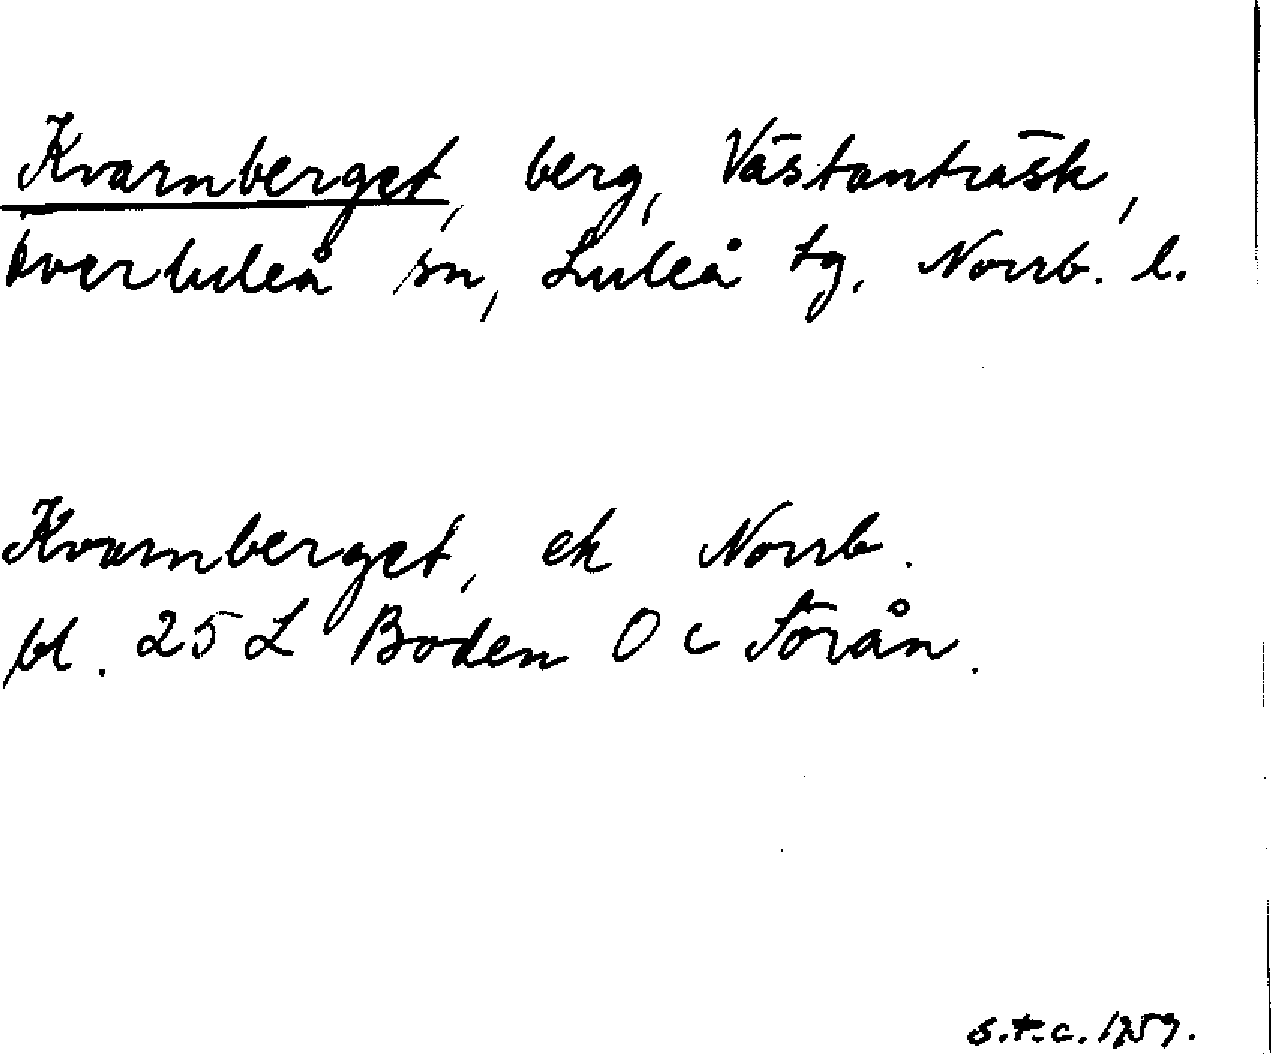 Kvarnberget, berg, Västanträsk,
Överluleå sn, Luleå tg, Norrb. l.
Kvarnberget, ek Norrb.
bl. 25 L Boden 0 c Sörån.
S.F.C. 1959.